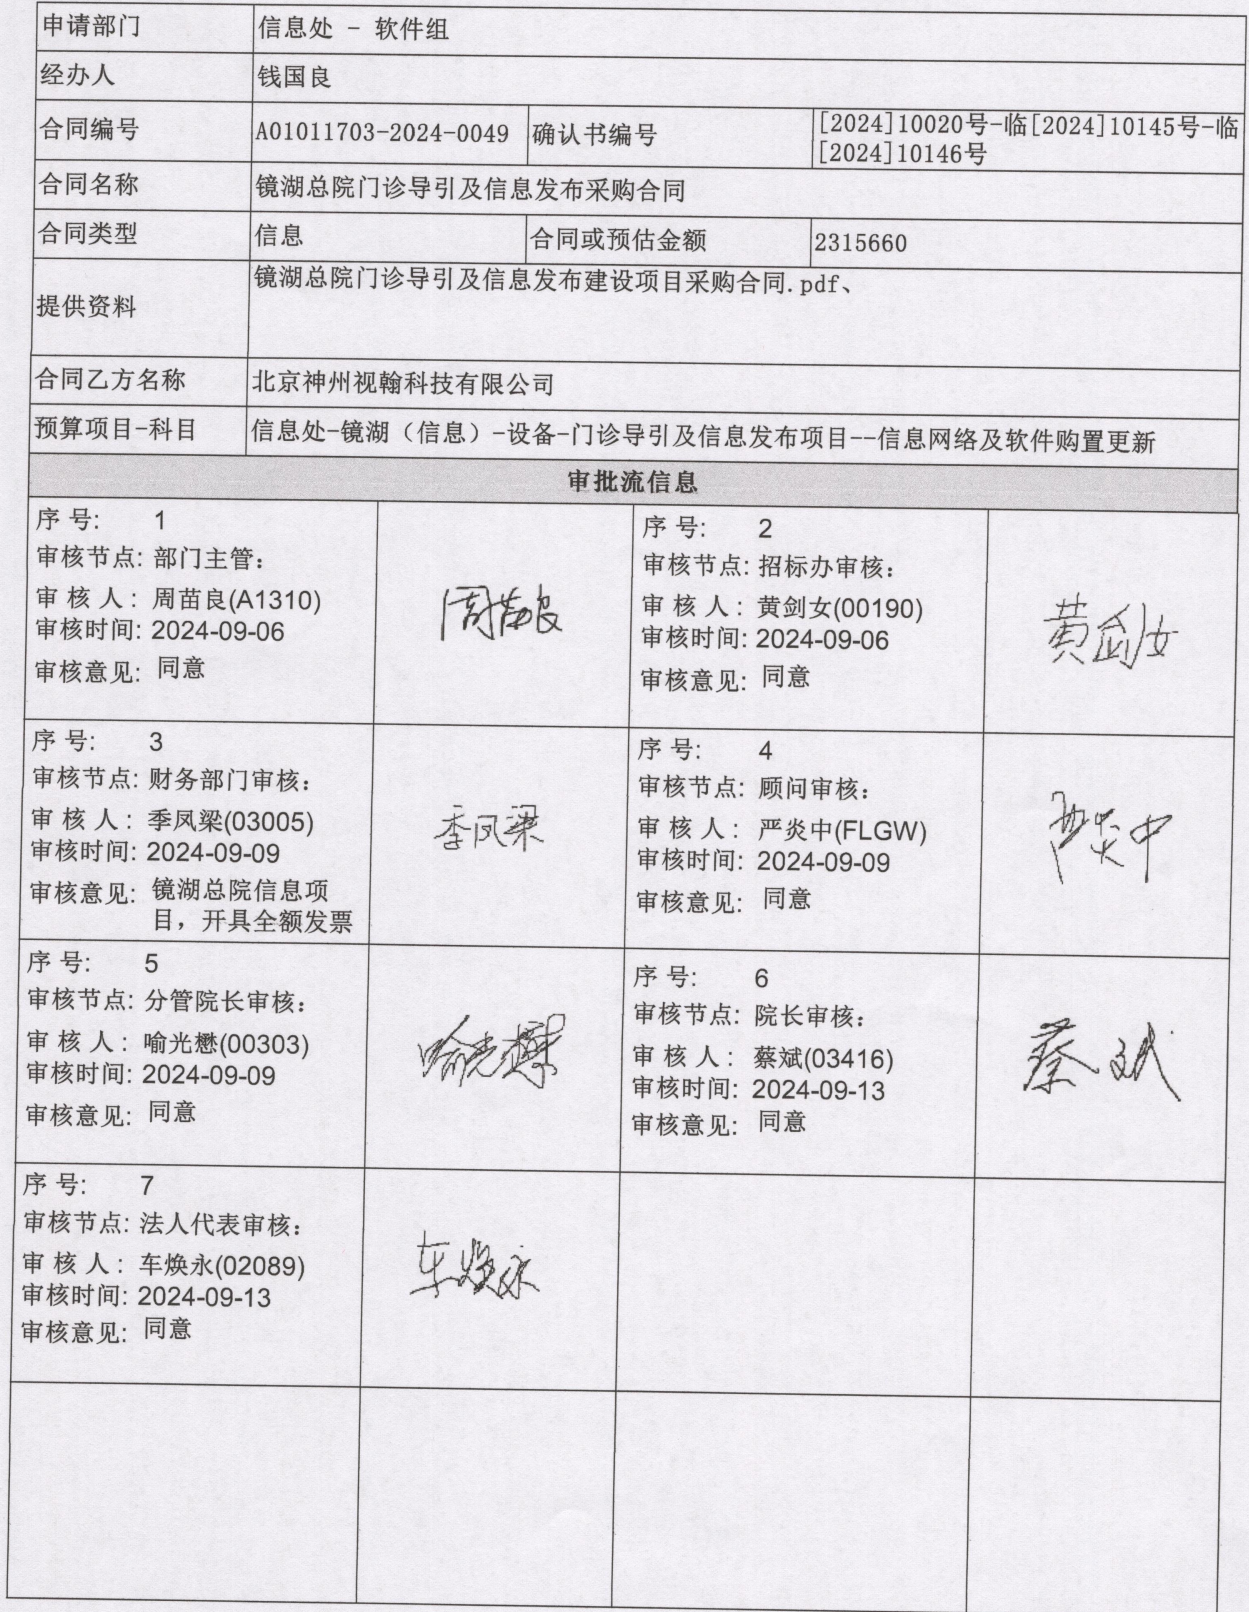 申请部门 信息处 - 软件组
经办人 钱国良
合同编号 A01011703-2024-0049 确认书编号 [2024]10020号-临[2024]10145号-临
[2024]10146号
合同名称 镜湖总院门诊导引及信息发布采购合同
合同类型 信息 合同或预估金额 2315660
提供资料 镜湖总院门诊导引及信息发布建设项目采购合同.pdf、
合同乙方名称 北京神州视翰科技有限公司
预算项目-科目 信息处-镜湖（信息）-设备-门诊导引及信息发布项目--信息网络及软件购置更新
审批流信息
序 号: 1
审核节点: 部门主管:
审 核 人: 周苗良(A1310)
审核时间: 2024-09-06
审核意见: 同意
周苗良
序 号: 2
审核节点: 招标办审核:
审 核 人: 黄剑女(00190)
审核时间: 2024-09-06
审核意见: 同意
黄剑女
序 号: 3
审核节点: 财务部门审核:
审 核 人: 季凤梁(03005)
审核时间: 2024-09-09
审核意见: 镜湖总院信息项
目，开具全额发票
季凤梁
序 号: 4
审核节点: 顾问审核:
审 核 人: 严炎中(FLGW)
审核时间: 2024-09-09
审核意见: 同意
严炎中
序 号: 5
审核节点: 分管院长审核:
审 核 人: 喻光懋(00303)
审核时间: 2024-09-09
审核意见: 同意
喻光懋
序 号: 6
审核节点: 院长审核:
审 核 人: 蔡斌(03416)
审核时间: 2024-09-13
审核意见: 同意
蔡斌
序 号: 7
审核节点: 法人代表审核:
审 核 人: 车焕永(02089)
审核时间: 2024-09-13
审核意见: 同意
车焕永